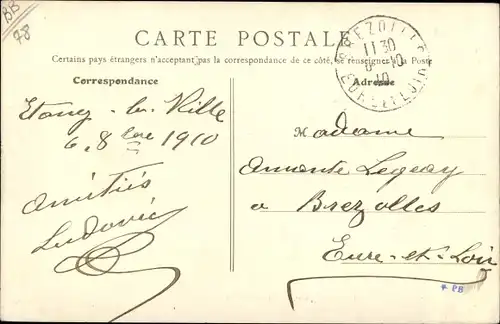 BB
78
CARTE POSTALE
Certains pays étrangers n'acceptant pas la correspondance de ce côté, se renseigner à la Poste
Correspondance
Adresse
BREZOLLES
11 30
8 - 10
10
EURE-ET-LOIR
Etang-la-Ville
6, 8bre 1910
Amitiés
Ludovic
Madame
Legeay
à Brezolles
Eure-et-Loir